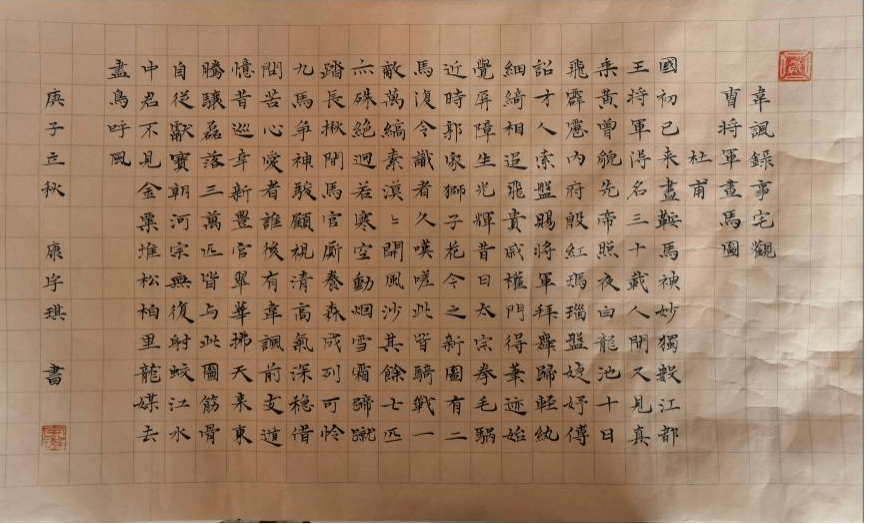 韋諷錄事宅觀
曹將軍畫馬圖
杜甫
國初已來畫鞍馬神妙獨數江都
王將軍得名三十載人間又見真
乘黃曾貌先帝照夜白龍池十日
飛霹靂內府殷紅瑪瑙盤婕妤傳
詔才人索盤賜將軍拜舞歸輕紈
細綺相追飛貴戚權門得筆迹始
覺屏障生光輝昔日太宗拳毛騧
近時郭家獅子花今之新圖有二
馬復令識者久嘆嗟此皆騎戰一
敵萬縞素漠〻開風沙其餘七匹
亦殊絕迥若寒空動烟雪霜蹄蹴
踏長楸間馬官廝養森成列可憐
九馬爭神駿顧視清高氣深穩借
問苦心愛者誰後有韋諷前支遁
憶昔巡幸新豐宮翠華拂天來東
騰驤磊落三萬匹皆与此圖筋骨
自從獻寶朝河宗無復射蛟江水
中君不見金粟堆松柏里龍媒去
盡鳥呼風
庚子立秋 康宇琪 書